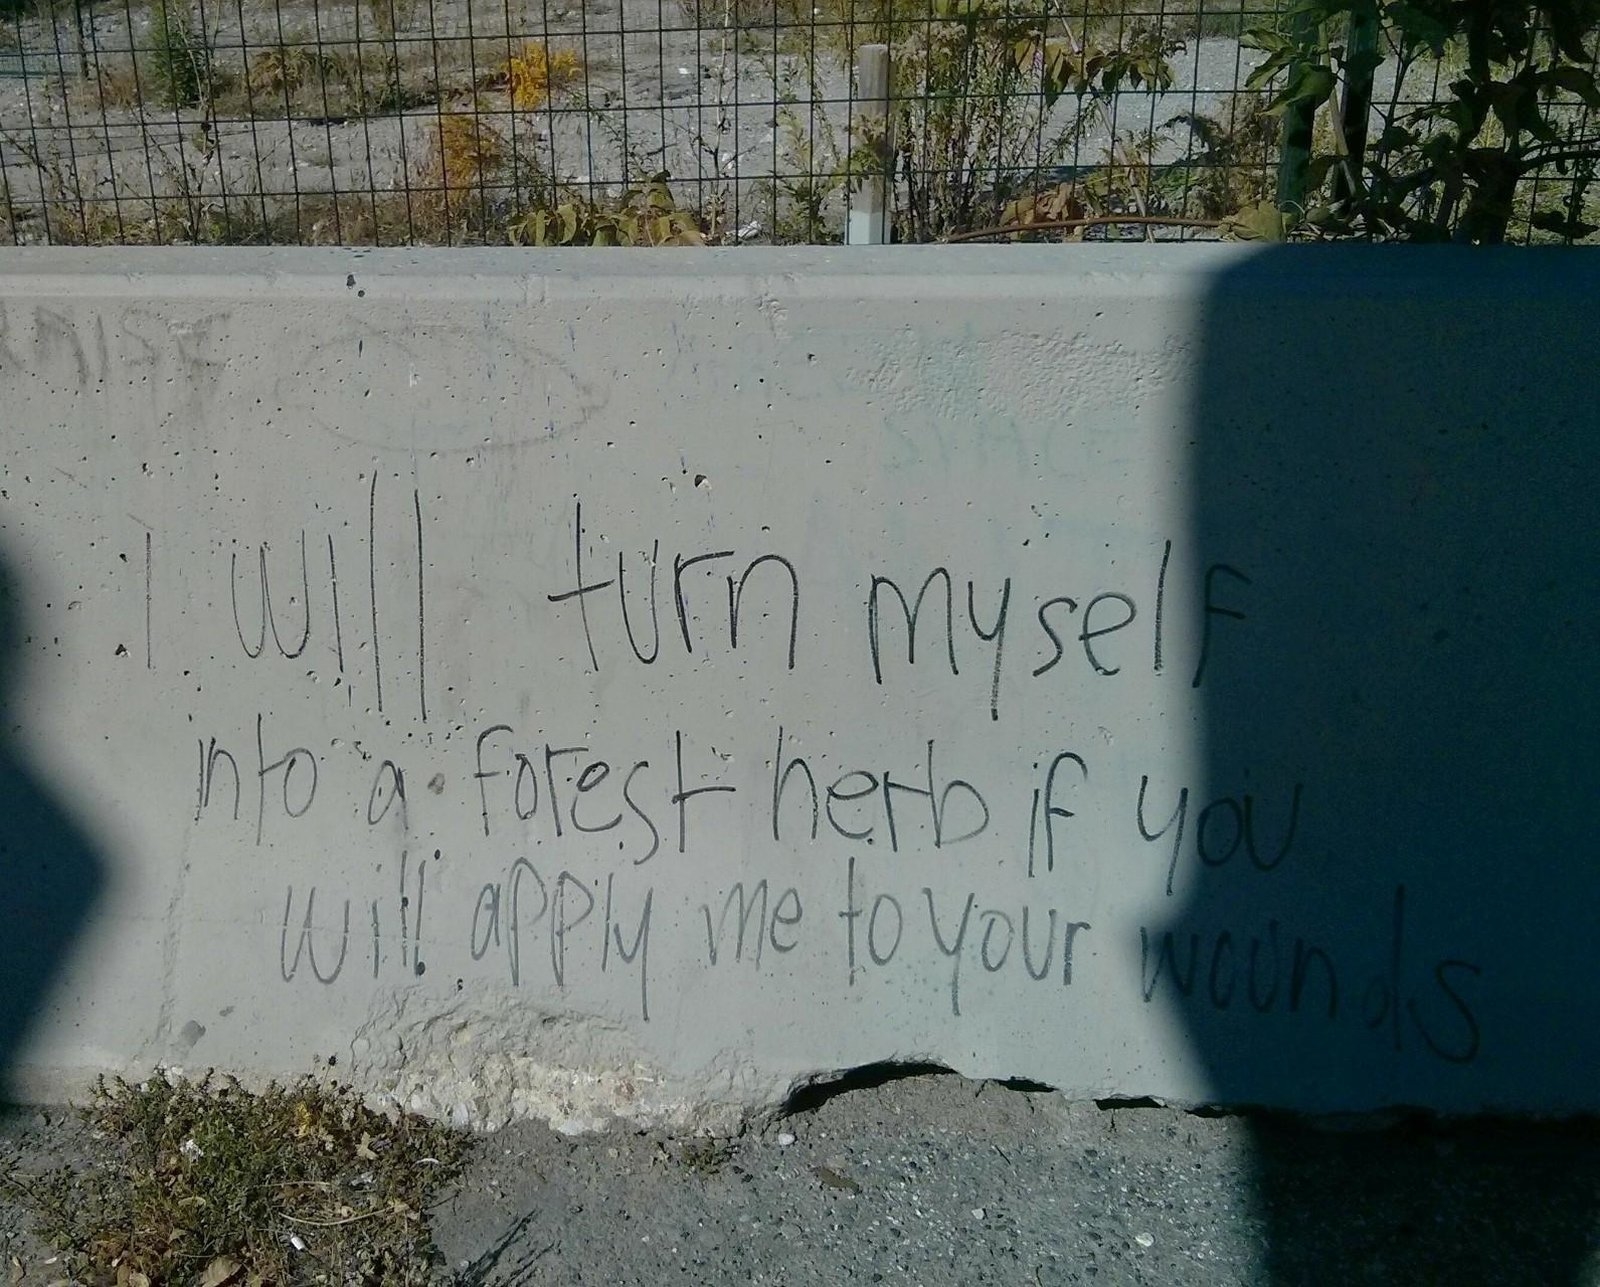 I will turn myself
into a forest herb if you
will apply me to your wounds